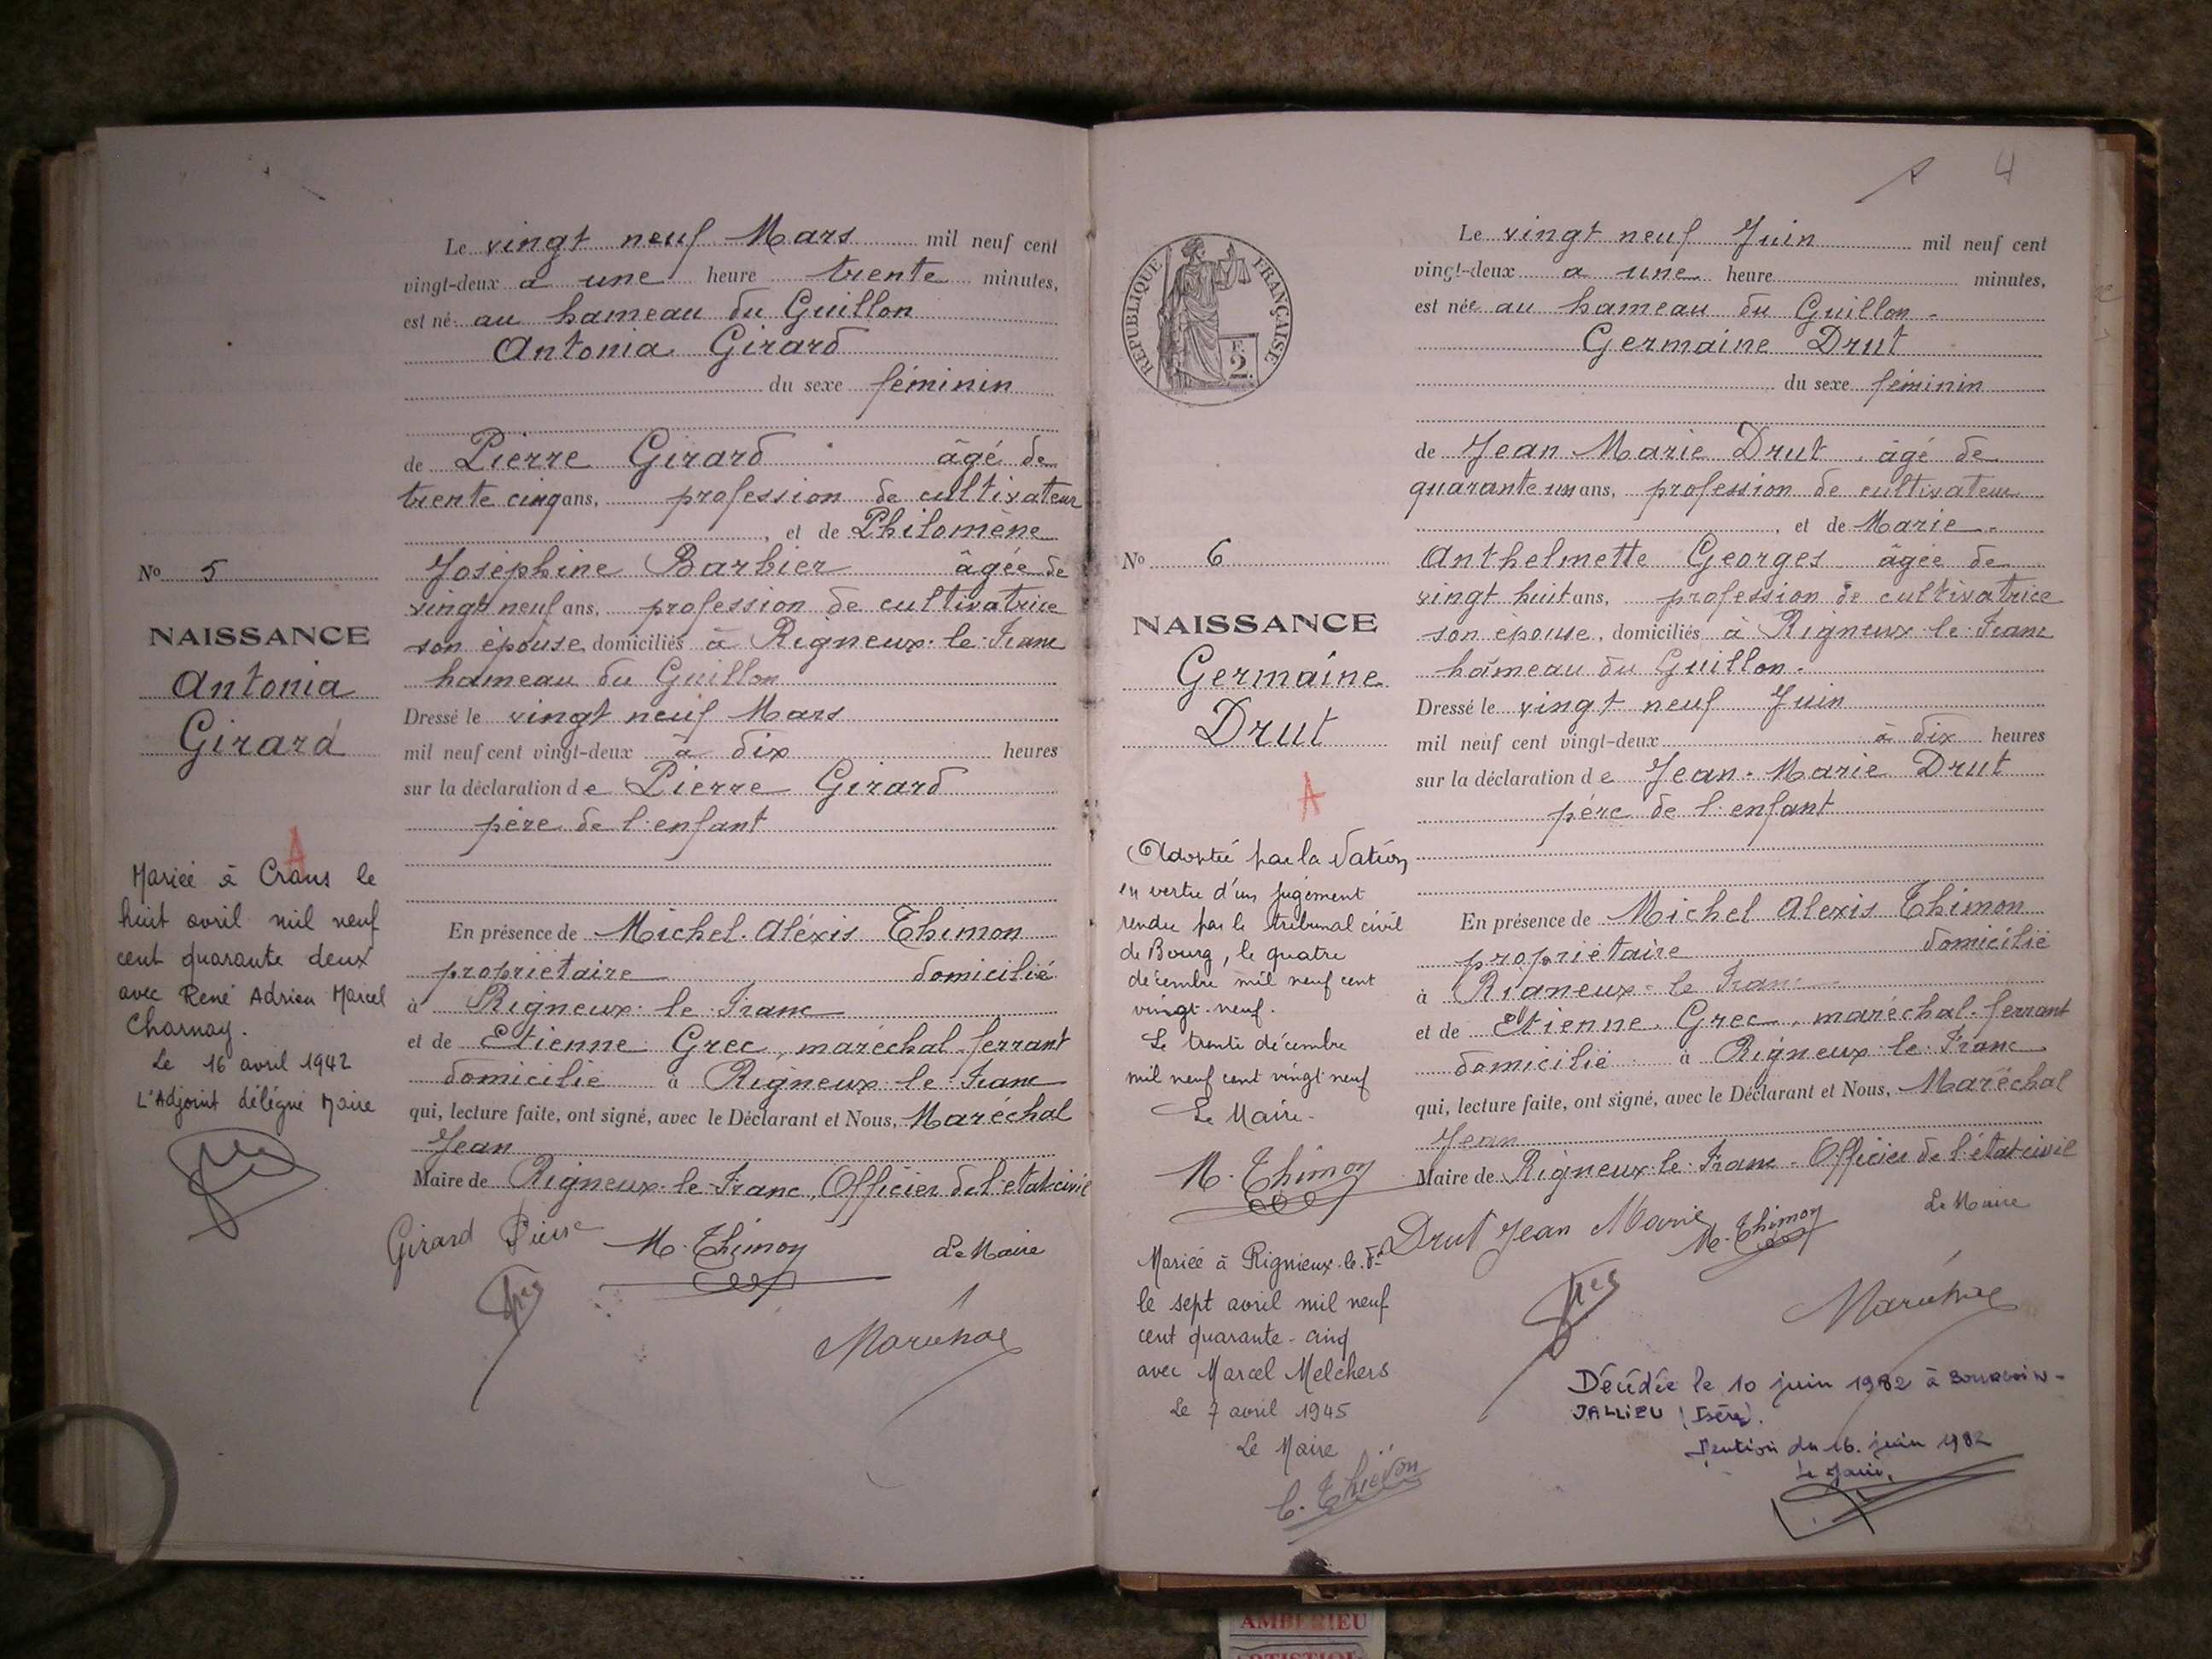 Le vingt neuf Mars mil neuf cent
vingt-deux à une heure trente minutes,
est né au hameau du Guillon
Antonia Girard
du sexe féminin
de Pierre Girard âgé de
trente cinq ans, profession de cultivateur
, et de Philomène
Joséphine Barbier âgée de
vingt neuf ans, profession de cultivatrice
son épouse, domiciliés à Rigneux-le-Franc
hameau du Guillon
Dressé le vingt neuf Mars
mil neuf cent vingt-deux à dix heures
sur la déclaration de Pierre Girard
père de l'enfant
En présence de Michel Aléxis Thimon
propriétaire domicilié
à Rigneux-le-Franc
et de Etienne Grec, maréchal-ferrant
domicilié à Rigneux-le-Franc
qui, lecture faite, ont signé, avec le Déclarant et Nous, Maréchal
Jean
Maire de Rigneux-le-Franc, Officier de l'état-civil
Girard Pierre M. Thimon Le Maire
Maréchal
No 5
NAISSANCE
Antonia
Girard
A
Mariée à Crans le
huit avril mil neuf
cent quarante deux
avec René Adrien Marcel
Charnay.
Le 16 avril 1942
L'Adjoint délégué Maire
4
RÉPUBLIQUE FRANÇAISE
2
No 6
NAISSANCE
Germaine
Drut
A
Adoptée par la Nation
en vertu d'un jugement
rendu par le tribunal civil
de Bourg, le quatre
décembre mil neuf cent
vingt-neuf.
Le trente décembre
mil neuf cent vingt neuf
Le Maire.
M. Thimon
Mariée à Rignieux-le-Fc
le sept avril mil neuf
cent quarante-cinq
avec Marcel Melchers
Le 7 avril 1945
Le Maire
Le vingt neuf Juin mil neuf cent
vingt-deux à une heure minutes,
est née au hameau du Guillon
Germaine Drut
du sexe féminin
de Jean Marie Drut, âgé de
quarante un ans, profession de cultivateur
, et de Marie
Anthelmette Georges âgée de
vingt huit ans, profession de cultivatrice
son épouse, domiciliés à Rigneux-le-Franc
hameau du Guillon.
Dressé le vingt neuf Juin
mil neuf cent vingt-deux à dix heures
sur la déclaration de Jean-Marie Drut
père de l'enfant
En présence de Michel Alexis Thimon
propriétaire domicilié
à Rigneux-le-Franc
et de Etienne Grec, maréchal-ferrant
domicilié à Rigneux-le-Franc
qui, lecture faite, ont signé, avec le Déclarant et Nous, Maréchal
Jean
Maire de Rigneux-le-Franc - Officier de l'état-civil
Drut Jean Marie M. Thimon Le Maire
Maréchal
Décédée le 10 juin 1982 à BOURGOIN-
JALLIEU (Isère).
Mention du 16 juin 1982
Le Maire,
AMBERIEU